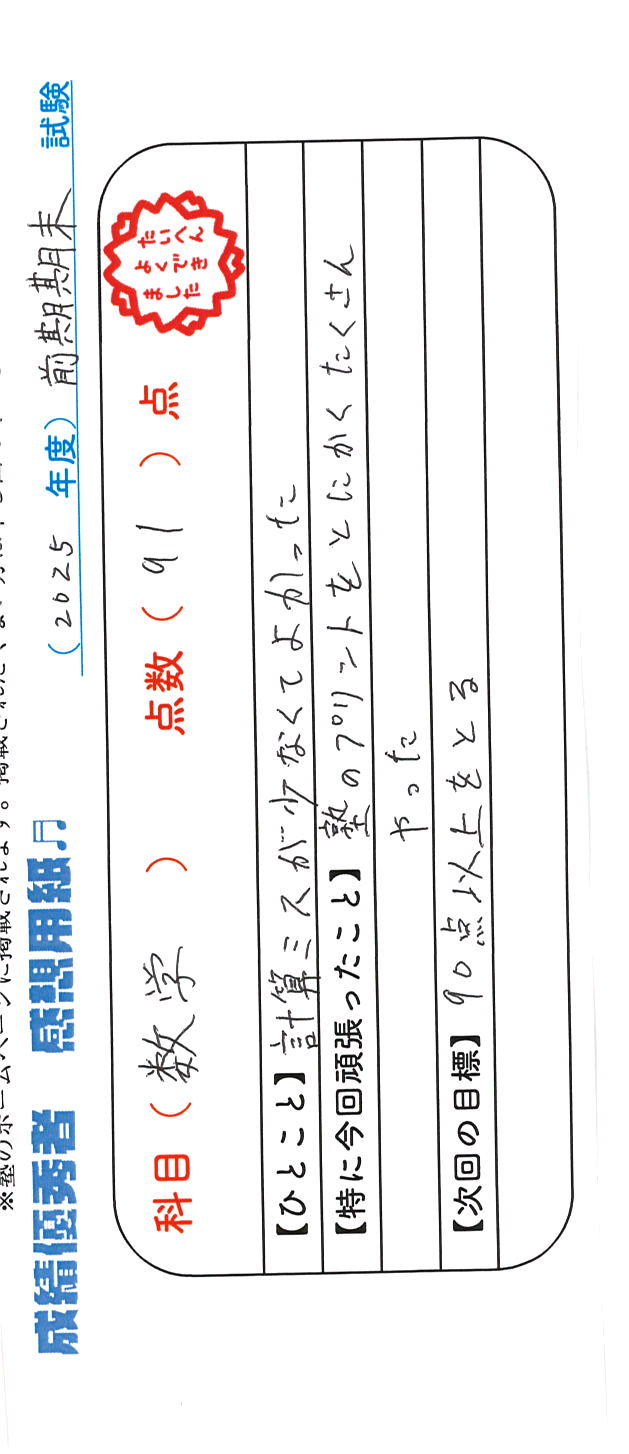 ※塾のホームページに掲載されます。掲載されたくない方は
成績優秀者 感想用紙♫ (2025 年度) 前期期末 試験
科目 ( 数学 ) 点数 ( 91 ) 点
たいへん
よくでき
ました
【ひとこと】計算ミスが少なくてよかった
【特に今回頑張ったこと】塾のプリントをとにかくたくさん
やった
【次回の目標】90点以上をとる